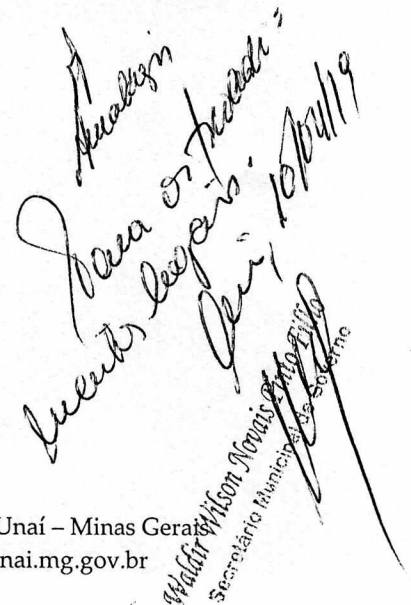 Para os procedi-
mentos legais.
10/04/19
Waldir Wilson Novais Pinto Filho
Secretário Municipal de Governo
Unaí – Minas Gerais
nai.mg.gov.br